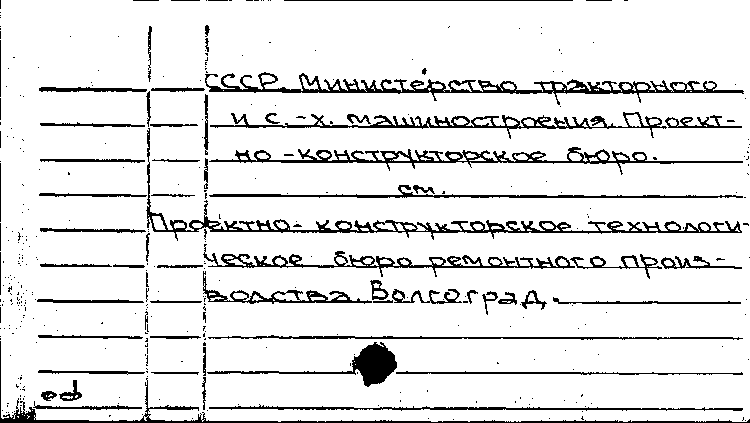 СССР. Министерство тракторного
и с.-х. машиностроения. Проект-
но-конструкторское бюро.
см.
Проектно-конструкторское технологи-
ческое бюро ремонтного произ-
водства. Волгоград.